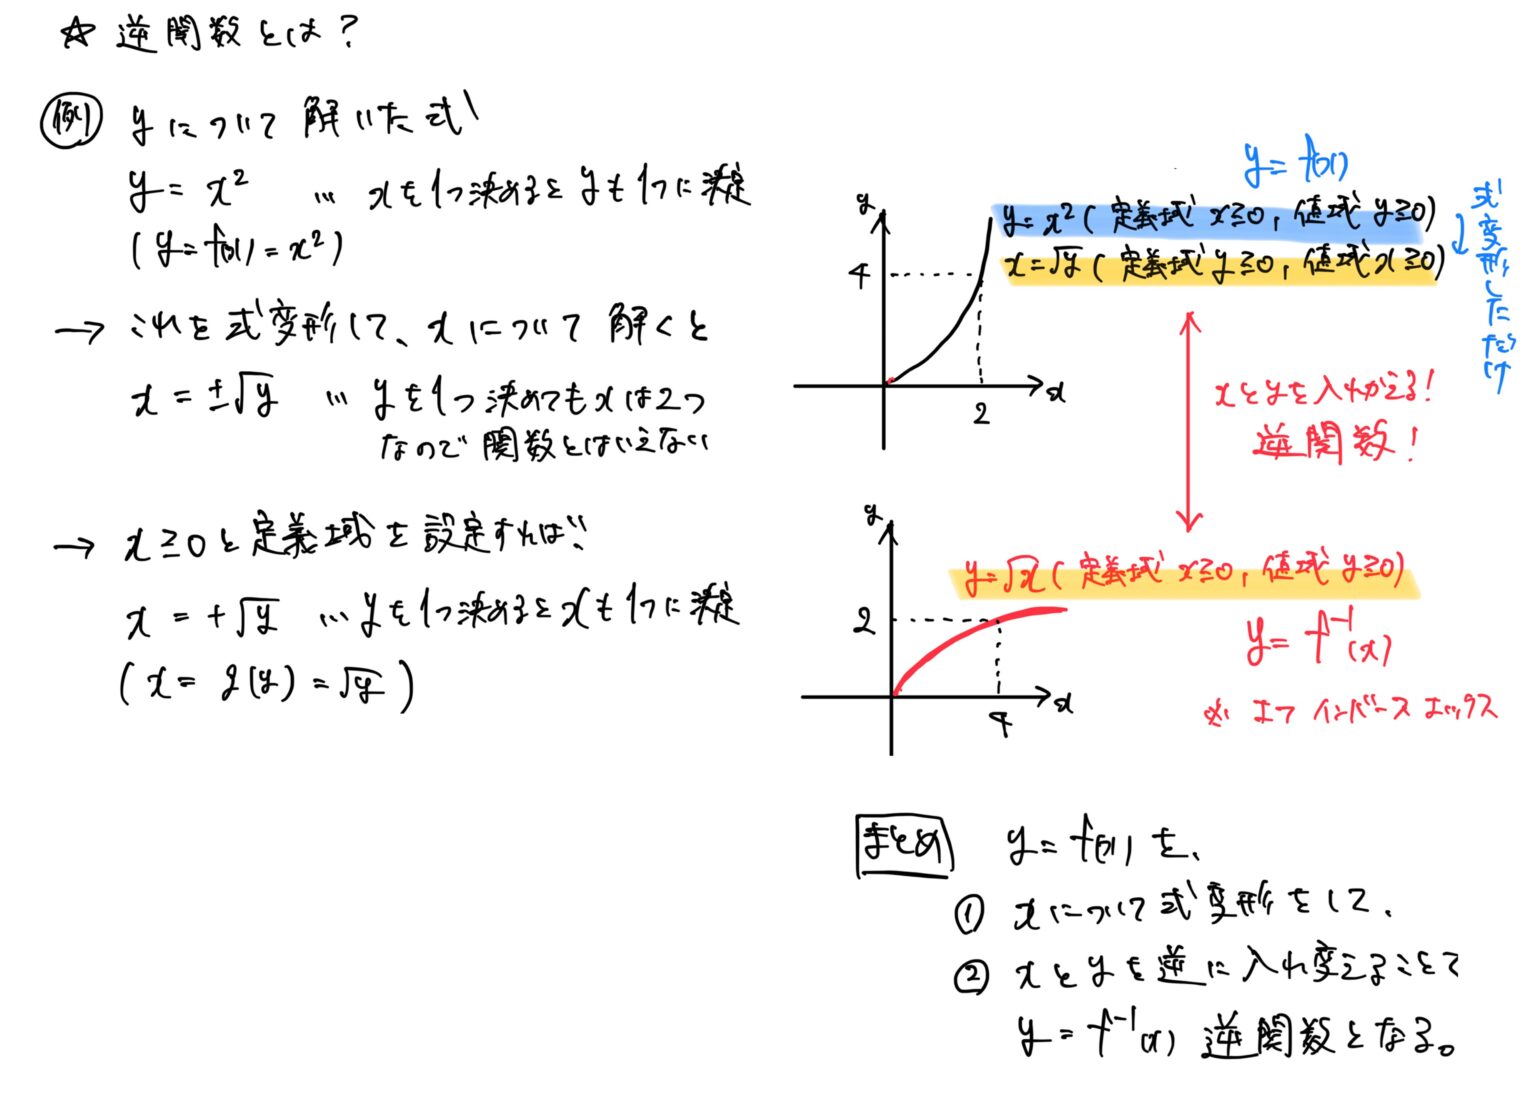 ☆ 逆関数とは?
例 yについて解いた式
y = x² … xを1つ決めるとyも1つに決定
(y = f(x) = x²)
→ これを式変形して、xについて解くと
x = ±√y … yを1つ決めてもxは2つ
なので関数とはいえない
→ x≧0と定義域を設定すれば、
x = +√y … yを1つ決めるとxも1つに決定
(x = g(y) = √y)
y = f(x)
y = x² (定義域 x≧0, 値域 y≧0)
x = √y (定義域 y≧0, 値域 x≧0)
式変形しただけ
y
4
2
x
xとyを入れかえる!
逆関数!
y
y = √x (定義域 x≧0, 値域 y≧0)
2
4
x
y = f⁻¹(x)
※ エフ インバース エックス
まとめ y = f(x) を、
① xについて式変形をして、
② xとyを逆に入れ変えることで
y = f⁻¹(x) 逆関数となる。